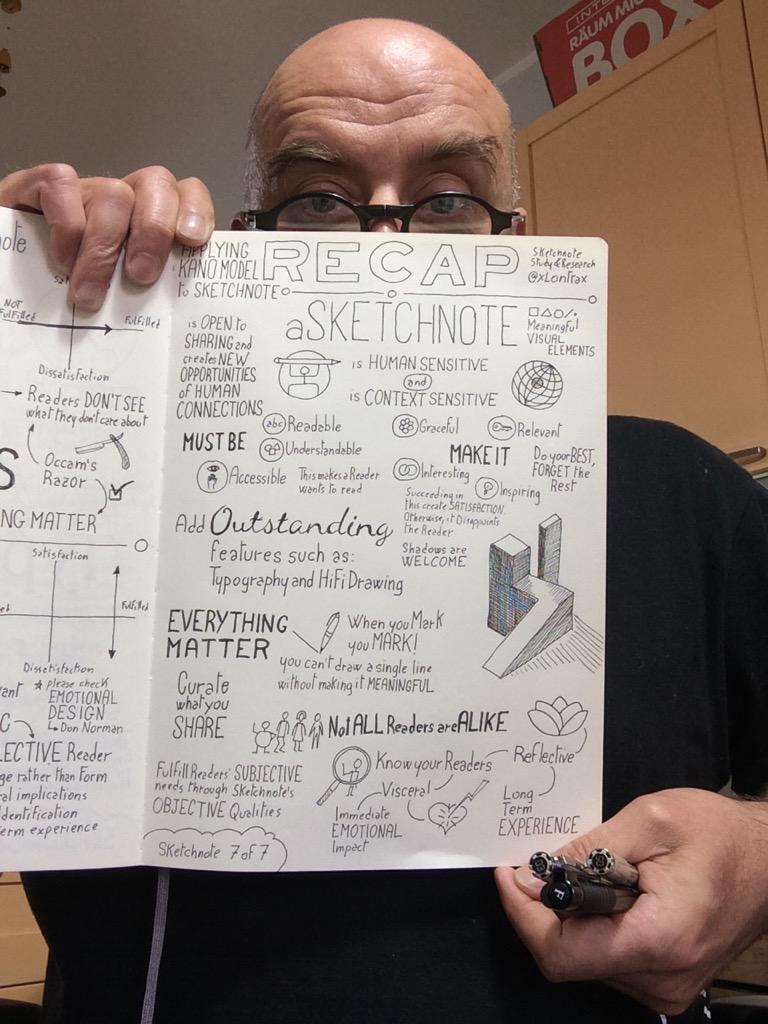 INTE
RÄUM MIC
BOX
ote
Sat
NOT
Fulfilled
Fulfilled
Dissatisfaction
Readers DON'T SEE
what they don't care about
Occam's
Razor
S
NG MATTER
Satisfaction
Fulfilled
Dissatisfaction
please check
EMOTIONAL
DESIGN
Don Norman
ant
C
LECTIVE Reader
ge rather than Form
al implications
Identification
erm experience
APPLYING
KANO MODEL
to SKETCHNOTE
RECAP
Sketchnote
Study&Research
@xLontrax
is OPEN to
SHARING and
creates NEW
OPPORTUNITIES
of HUMAN
CONNECTIONS
a SKETCHNOTE
Meaningful
VISUAL
ELEMENTS
is HUMAN SENSITIVE
and
is CONTEXT SENSITIVE
MUST BE
abc Readable
Understandable
Accessible
This makes a Reader
wants to read
Graceful
Relevant
MAKE IT
Interesting
Inspiring
Do your BEST,
FORGET the
Rest
Succeeding in
this create SATISFACTION.
Otherwise, it Disappoints
the Reader
Add Outstanding
features such as:
Typography and HiFi Drawing
Shadows are
WELCOME
EVERYTHING
MATTER
When you Mark
you MARK!
you can't draw a single line
without making it MEANINGFUL
Curate
what you
SHARE
Not ALL Readers are ALIKE
Know your Readers
Reflective
Visceral
Immediate
EMOTIONAL
Impact
Long
Term
EXPERIENCE
Fulfill Readers' SUBJECTIVE
needs through Sketchnote's
OBJECTIVE Qualities
Sketchnote 7 of 7
F